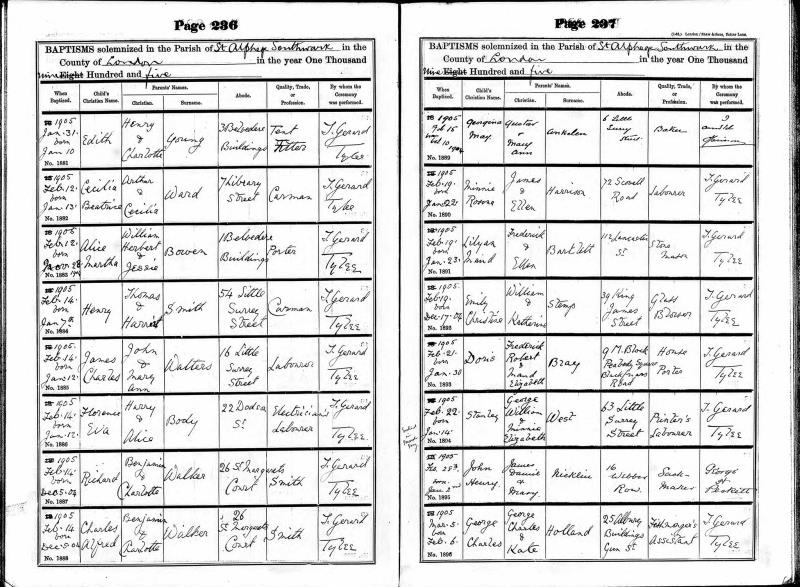 Page 236
BAPTISMS solemnized in the Parish of St Alphege Southwark in the
County of London in the year One Thousand
Nine Eight Hundred and five
When Baptized. Child's Christian Name. Parents' Names. Christian. Surname. Abode. Quality, Trade, or Profession. By whom the Ceremony was performed.
1905 Jan. 31. born Jan 10 No. 1881 Edith Henry & Charlotte Young 3 Belvedere Buildings Tent Fitter T. Gerard Tylee
1905 Feb. 12. born Jan. 13. No. 1882 Cecilia Beatrice Arthur & Cecilia Ward 7 Library Street Carman T. Gerard Tylee
1905 Feb. 12. born No. 1883 Alice Martha William Herbert & Jessie Bowen 1 Belvedere Buildings Porter T. Gerard Tylee
1905 Feb. 14. born Jan 7th No. 1884 Henry Thomas & Harriet Smith 54 Little Surrey Street Carman T. Gerard Tylee
1905. Feb. 14. born Jan. 12. No. 1885 James Charles John & Mary Ann Walters 16 Little Surrey Street Labourer T. Gerard Tylee
1905 Feb. 14. born Jan. 12. No. 1886 Florence Eva Harry & Alice Body 22 St. Electrician's Labourer T. Gerard Tylee.
1905 Feb. 14. born Dec. 5. 04 No. 1887 Richard Benjamin & Charlotte Walker 26 St Margarets Court Smith T. Gerard Tylee
1905 Feb. 14 born Dec. 5 04 No. 1888 Charles Alfred Benjamin & Charlotte Walker 26 St Margarets Court Smith T. Gerard Tylee
Page 237
BAPTISMS solemnized in the Parish of St Alphege Southwark in the
County of London in the year One Thousand
Nine Eight Hundred and five
When Baptized. Child's Christian Name. Parents' Names. Christian. Surname. Abode. Quality, Trade, or Profession. By whom the Ceremony was performed.
1905 Feb 15 No. 1889 Georgina May. Gustav & Mary Ann 6 Little Surry Street. Baker
1905 Feb. 19. born Jan. 22. No. 1890 Minnie Rosina James & Ellen Harrison 72 Scovell Road Labourer T. Gerard Tylee
1905 Feb. 19. born Jan. 23. No. 1891 Lilyan Maud Frederick & Ellen Bartlett 112 Lancaster St Stone Mason T. Gerard Tylee
1905 Feb. 19. born Dec. 17. 04 No. 1892 Emily Christine William & Katherine Stemp 39 King James Street Glass Blower T. Gerard Tylee
1905 Feb. 21. born Jan. 30 No. 1893 Doris Frederick Robert & Maud Elizabeth Bray 9 M. Block Peabody Square Blackfriars Road House Porter T. Gerard Tylee.
1905 Feb. 22. born Jan. 14. No. 1894 Stanley George William & Minnie Elizabeth West 63 Little Surrey Street Printer's Labourer T. Gerard Tylee
1905 Feb. 28th. born No. 1895 John Henry. James Daniel & Mary Nicklin 16 Webber Row. Sack-Maker George
1905 Mar. 5. born Feb. 6. No. 1896 George Charles George Charles & Kate Holland 25 Albury Buildings Gun St Fishmonger's Assistant T. Gerard Tylee